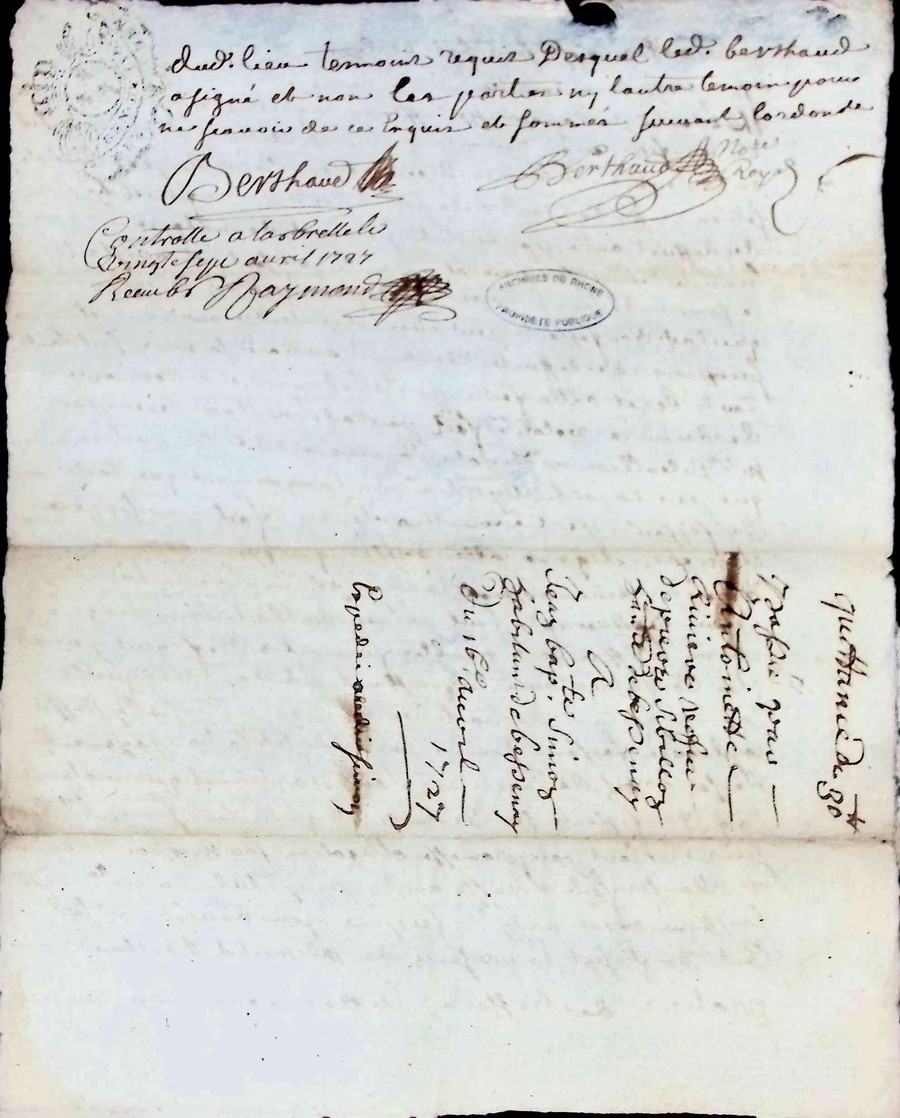 dud. lieu temoins requis Desquel led. berthaud
a signé et non les parties ny lautre temoin pour
ne scavoir de ce Enquis et sommés suivant lordonce
Berthaud
Berthaud Nore
Royal
Controlle a larbrelle le
vingt sept avril 1727
Raymond
ARCHIVES DU RHONE
PROPRIETE PUBLIQUE
quittance de 30tt
passée par
Antoinette
Riviere
de pierre
de bessenay
A
Jean bap.te Simon
habitant de bessenay
Du 16e avril
1727